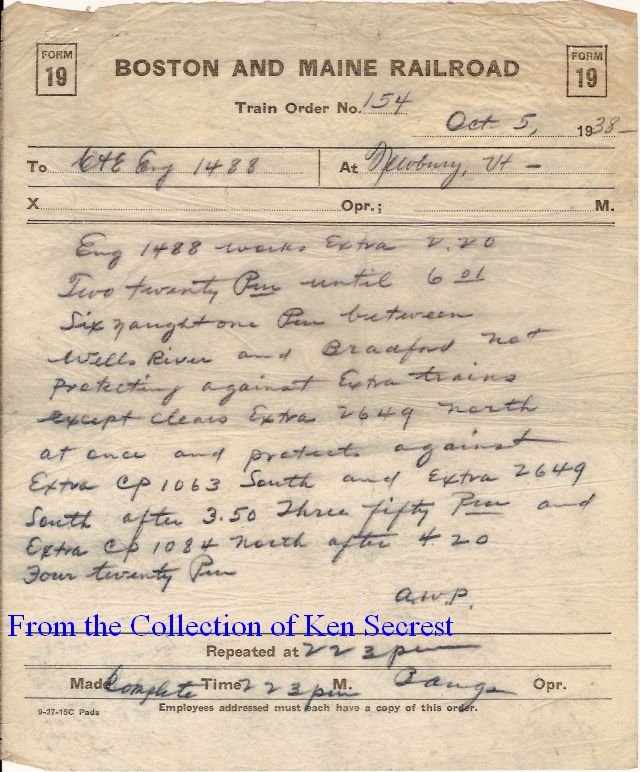 FORM 19
BOSTON AND MAINE RAILROAD
FORM 19
Train Order No. 154
Oct 5, 1938
To C+E Eng 1488 At Newbury, Vt -
X Opr.; M.
Eng 1488 works Extra 2.20
Two twenty Pm until 6 01
Six naught one Pm between
Wells River and Bradford not
protecting against Extra trains
except clears Extra 2649 north
at once and protects against
Extra CP 1063 South and Extra 2649
South after 3.50 Three fifty Pm and
Extra CP 1084 North after 4 20
Four twenty Pm
A.W.P.
From the Collection of Ken Secrest
Repeated at 2 23 pm
Made Complete Time 2 23 pm M. Opr.
9-37-15C Pads Employees addressed must each have a copy of this order.